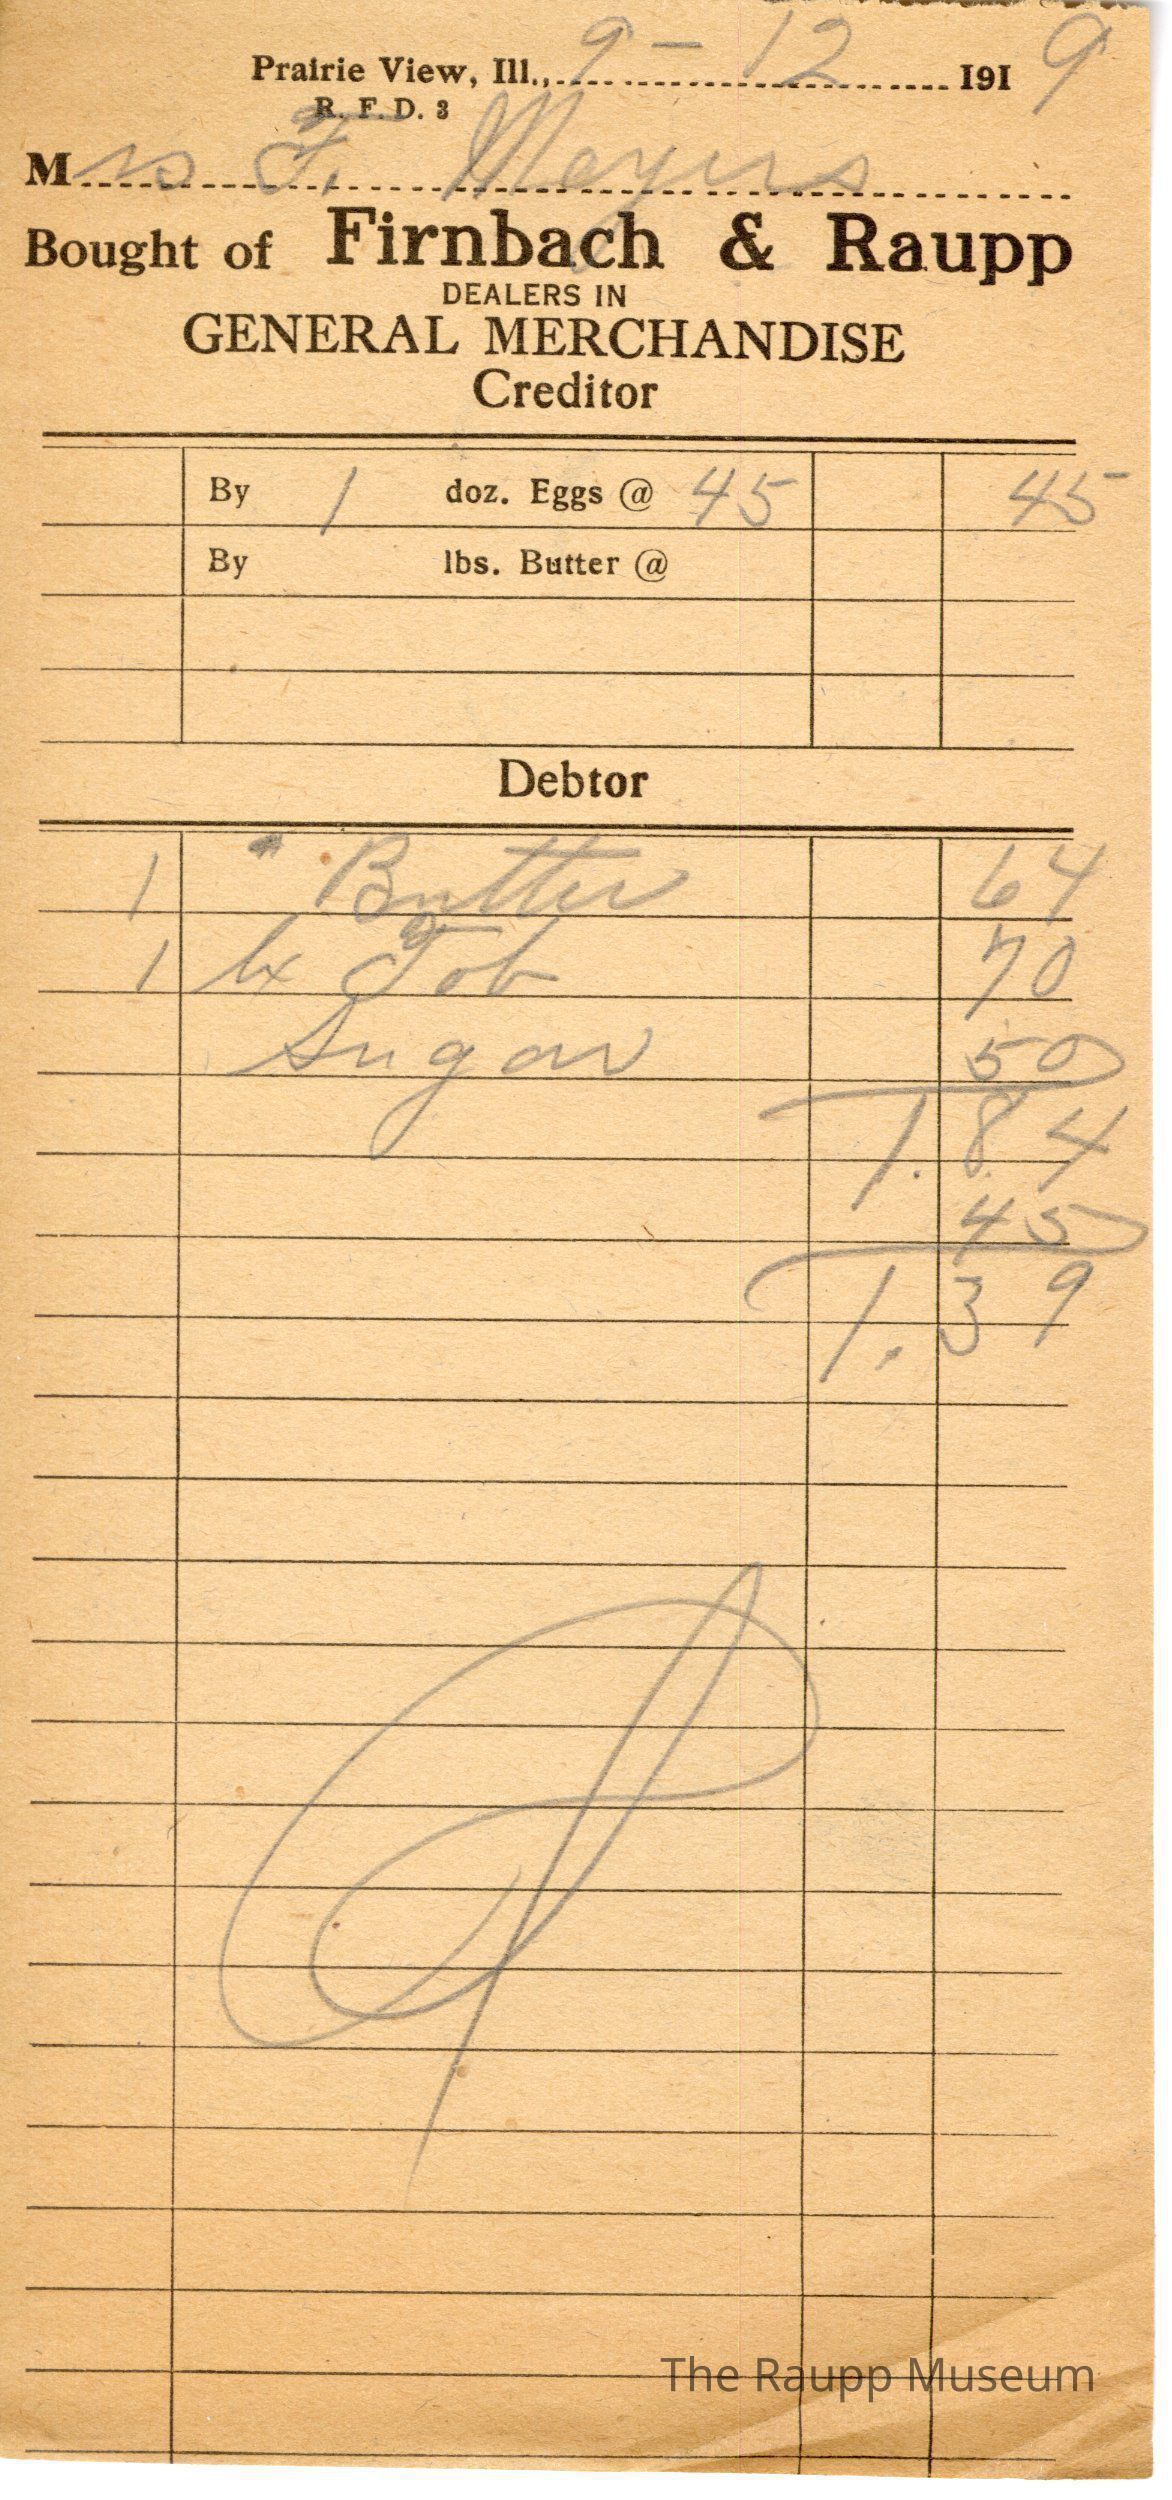 Prairie View, Ill., 9-12 1919
R. F. D. 3
Mrs F. Meyers
Bought of Firnbach & Raupp
DEALERS IN
GENERAL MERCHANDISE
Creditor
By 1 doz. Eggs @ 45 45
By lbs. Butter @
Debtor
1 " Butter 64
1 bx Tob 70
Sugar 50
1.84
45
1.39
The Raupp Museum